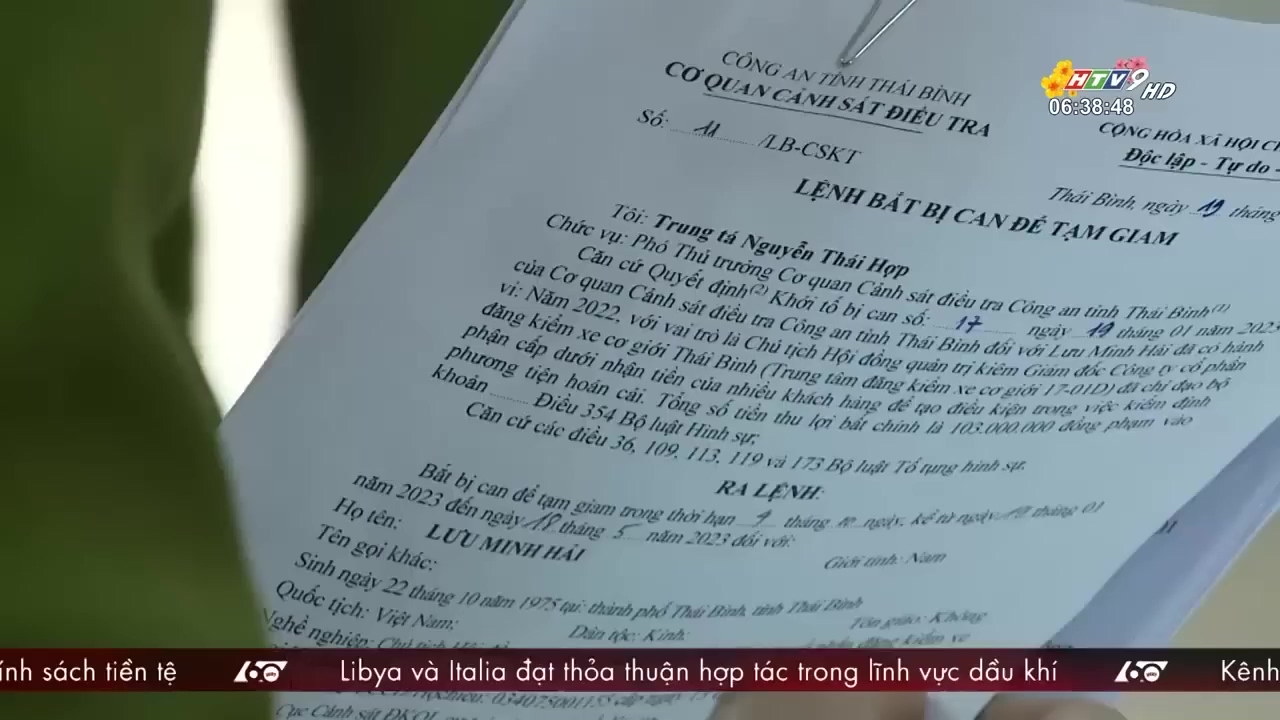 HTV9 HD
06:38:48
CÔNG AN TỈNH THÁI BÌNH
CƠ QUAN CẢNH SÁT ĐIỀU TRA
Số: 11 /LB-CSKT
CỘNG HÒA XÃ HỘI
Độc lập - Tự do -
Thái Bình, ngày 19 tháng
LỆNH BẮT BỊ CAN ĐỂ TẠM GIAM
Tôi: Trung tá Nguyễn Thái Hợp
Chức vụ: Phó Thủ trưởng Cơ quan Cảnh sát điều tra Công an tỉnh Thái Bình(1)
Căn cứ Quyết định(2) Khởi tố bị can số: 17 ngày 19 tháng 01 năm 2023
của Cơ quan Cảnh sát điều tra Công an tỉnh Thái Bình đối với Lưu Minh Hải đã có hành
vi: Năm 2022, với vai trò là Chủ tịch Hội đồng quản trị kiêm Giám đốc Công ty cổ phần
đăng kiểm xe cơ giới Thái Bình (Trung tâm đăng kiểm xe cơ giới 17-01D) đã chỉ đạo bộ
phận cấp dưới nhận tiền của nhiều khách hàng để tạo điều kiện trong việc kiểm định
phương tiện hoán cải. Tổng số tiền thu lợi bất chính là 103.000.000 đồng phạm vào
khoản ......... Điều 354 Bộ luật Hình sự;
Căn cứ các điều 36, 109, 113, 119 và 173 Bộ luật Tố tụng hình sự,
RA LỆNH:
Bắt bị can để tạm giam trong thời hạn 4 tháng ngày, kể từ ngày 19 tháng 01
năm 2023 đến ngày 18 tháng 5 năm 2023 đối với:
Họ tên: LƯU MINH HẢI
Giới tính: Nam
Tên gọi khác:
Sinh ngày 22 tháng 10 năm 1975 tại: thành phố Thái Bình, tỉnh Thái Bình
Quốc tịch: Việt Nam; Dân tộc: Kinh; Tôn giáo: Không
Nghề nghiệp: Chủ tịch đăng kiểm xe
ính sách tiền tệ 60 giây Libya và Italia đạt thỏa thuận hợp tác trong lĩnh vực dầu khí 60 giây Kênh
034075001155 cấp ngày
Cục Cảnh sát ĐKQL